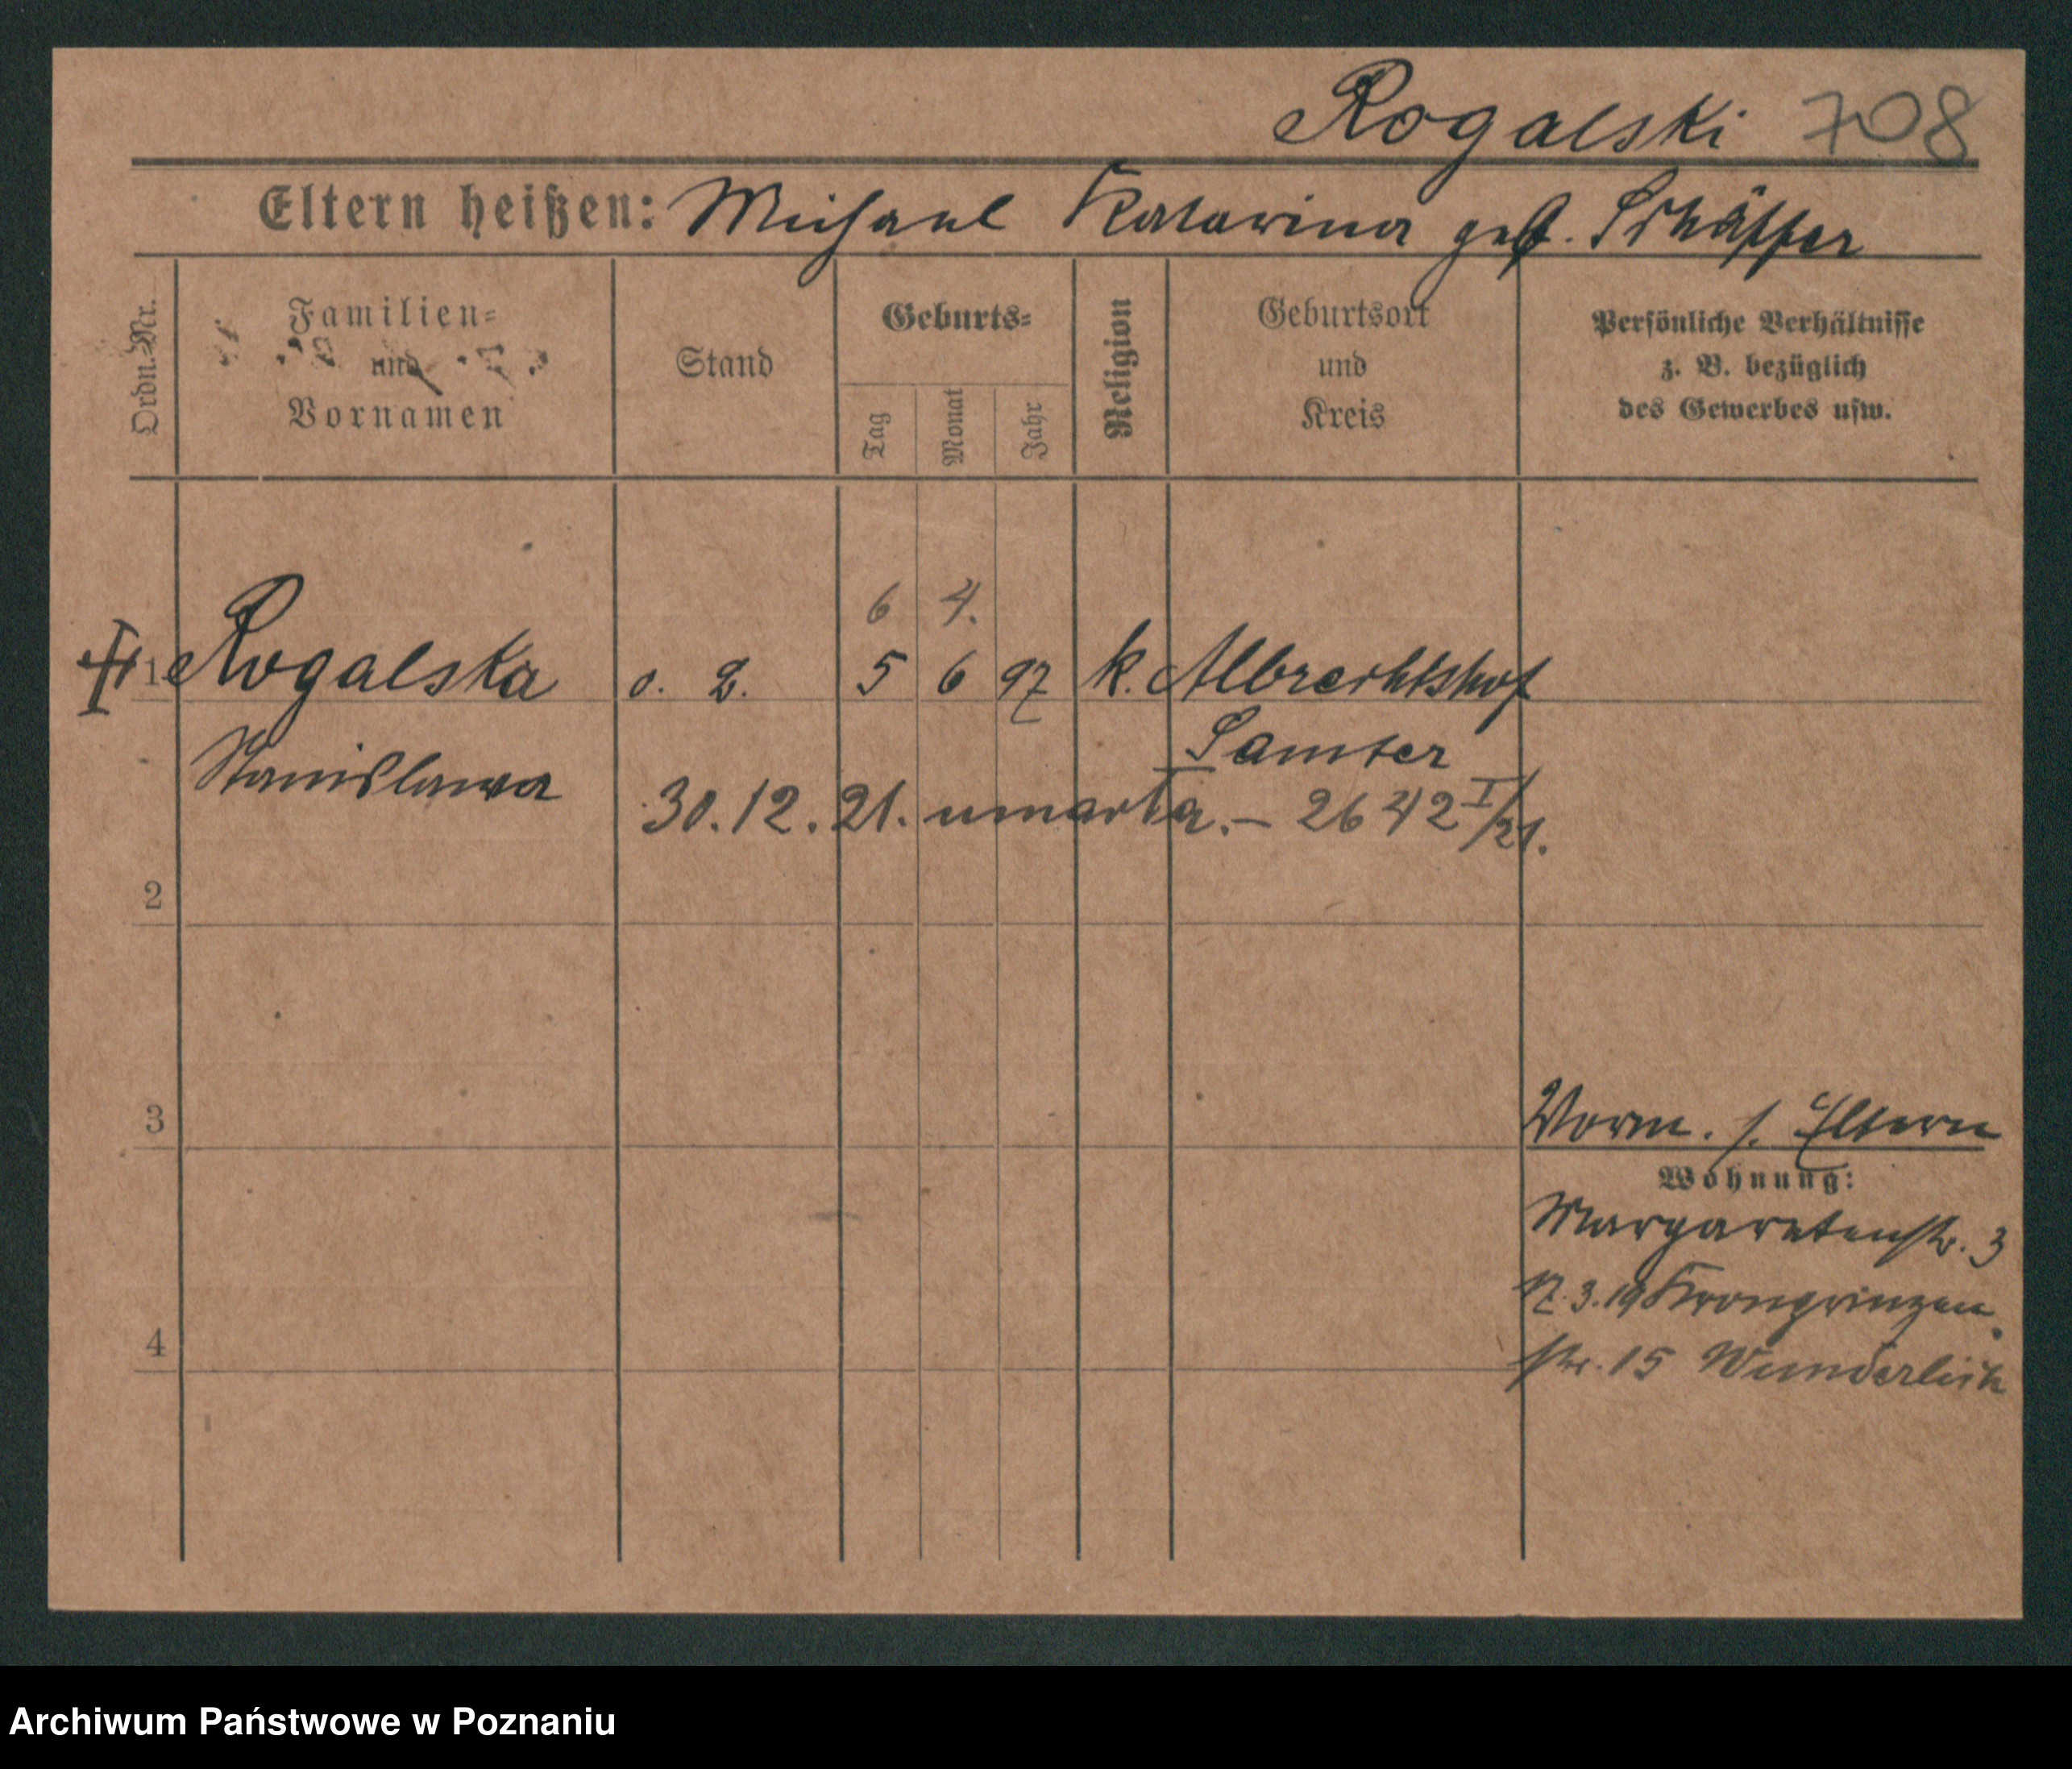 Rogalski 708
Eltern heißen: Michael Katarina geb. Schäffer
Ordn.-Nr.
Familien-
und
Vornamen
Stand
Geburts-
Tag
Monat
Jahr
Religion
Geburtsort
und
Kreis
Persönliche Verhältnisse
z. B. bezüglich
des Gewerbes usw.
6 4.
1 Rogalska o. B. 5 6 97 k. Albrechtshof
Stanislawa Samter
30.12.21. umarła. – 2642 I/21.
2
3
Vorm. s. Eltern
Wohnung:
Margaretenstr. 3
17.3.19 Kronprinzen
4
str. 15 Wunderlich
Archiwum Państwowe w Poznaniu